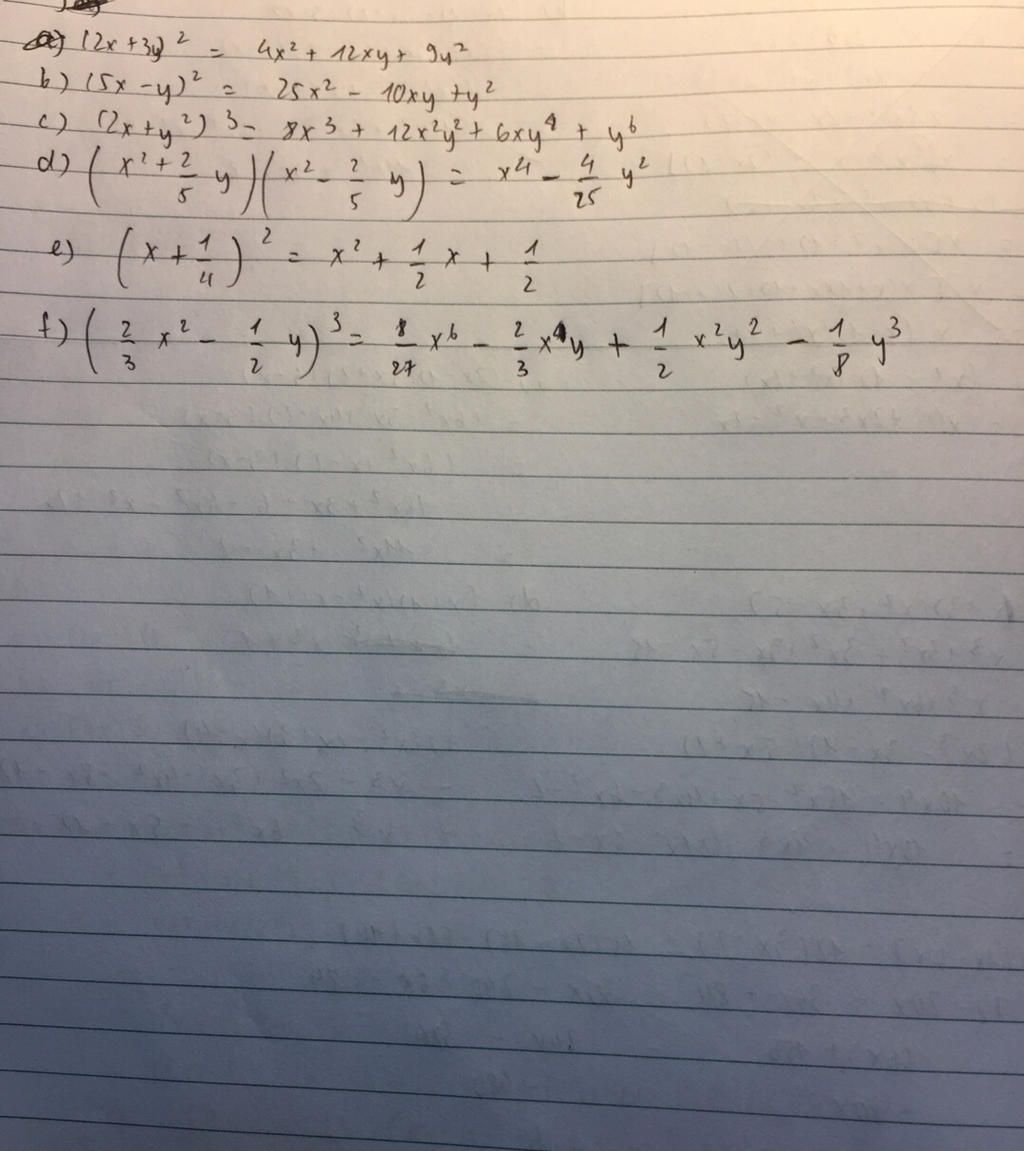 a) (2x+3y)² = 4x² + 12xy + 9y²
b) (5x-y)² = 25x² - 10xy + y²
c) (2x+y²)³ = 8x³ + 12x²y² + 6xy⁴ + y⁶
d) (x² + 2/5 y)(x² - 2/5 y) = x⁴ - 4/25 y²
e) (x + 1/4)² = x² + 1/2 x + 1/2
f) (2/3 x² - 1/2 y)³ = 8/27 x⁶ - 2/3 x⁴y + 1/2 x²y² - 1/8 y³